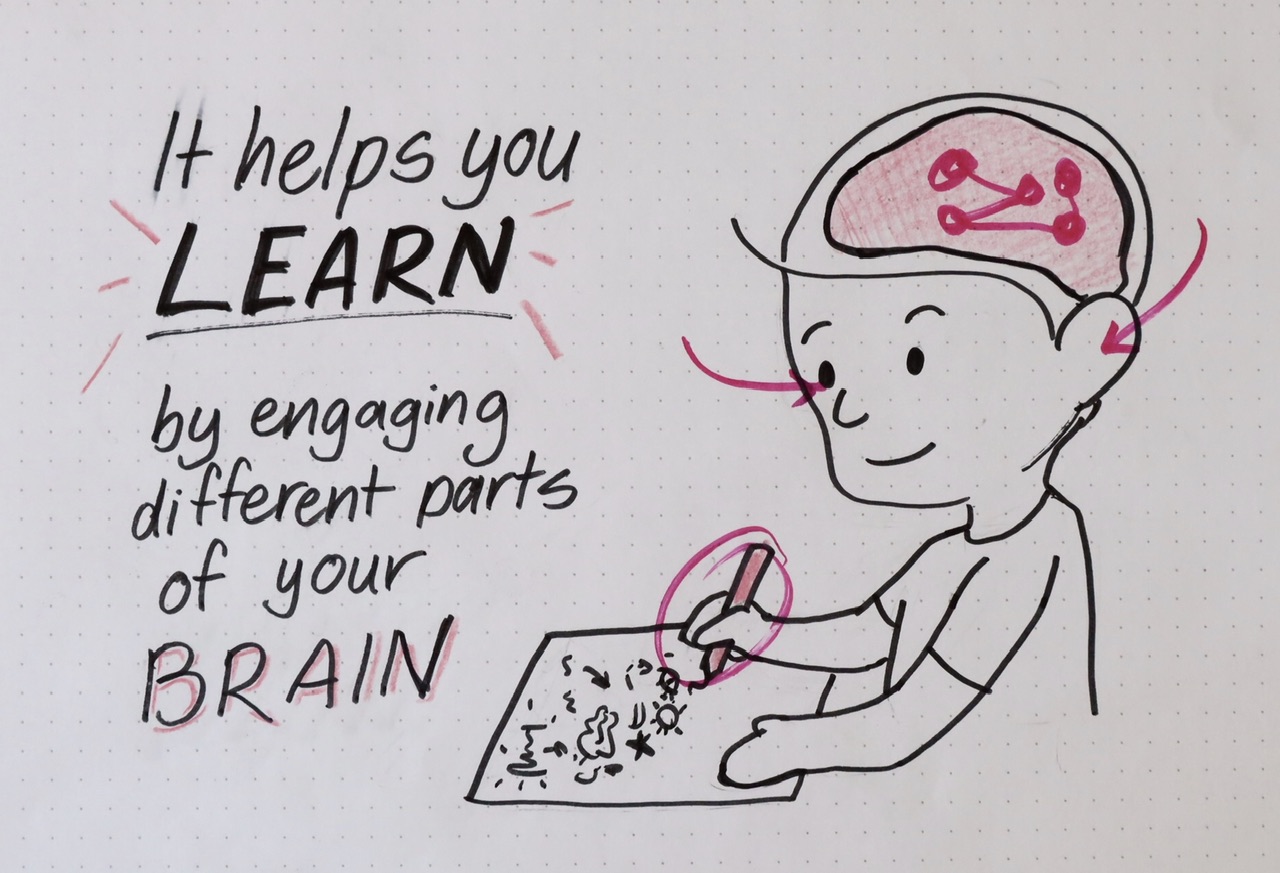 It helps you
LEARN
by engaging
different parts
of your
BRAIN